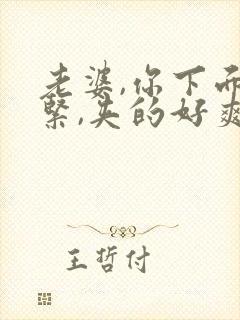 老婆,你下面
紧,夹的好爽
王哲付